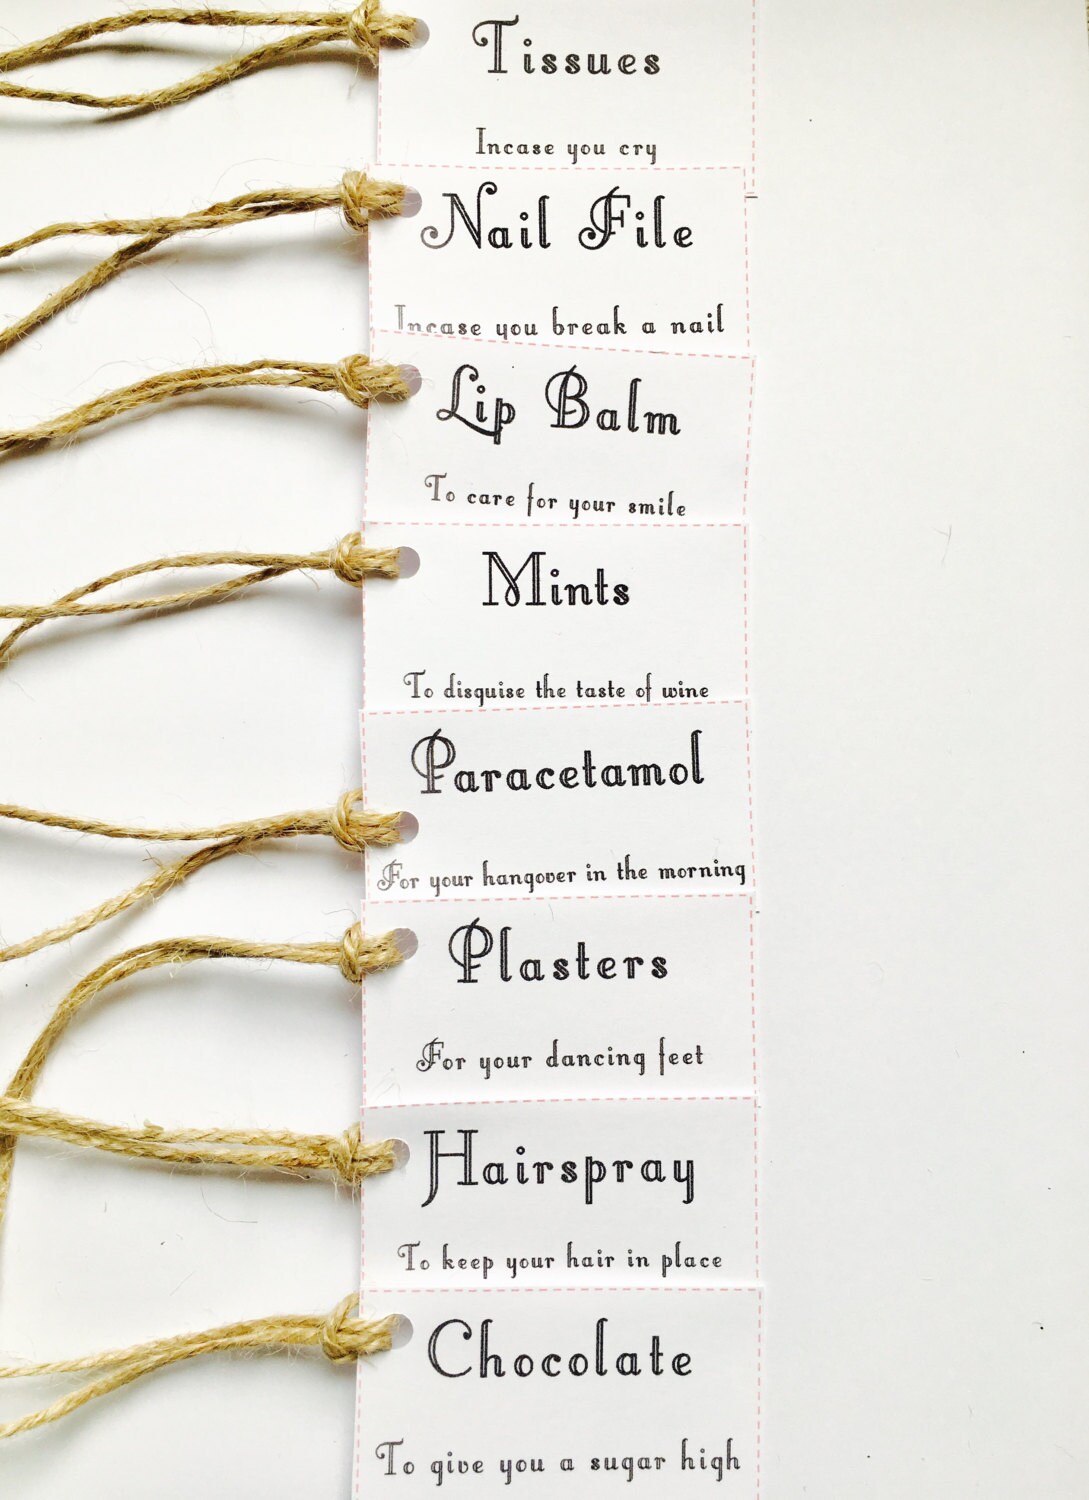 Tissues
Incase you cry
Nail File
Incase you break a nail
Lip Balm
To care for your smile
Mints
To disquise the taste of wine
Paracetamol
For your hangover in the morning
Plasters
For your dancing feet
Hairspray
To keep your hair in place
Chocolate
To give you a sugar high